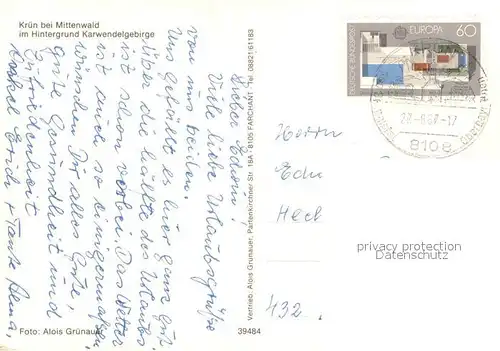 Krün bei Mittenwald
im Hintergrund Karwendelgebirge
Lieber Edwin!
Viele liebe Urlaubsgrüße
von uns beiden.
Uns gefällt es hier ganz gut
über die Hälfte des Urlaubs
ist schon vorbei. Das Wetter
ist auch so einigermaßen
wünschen Dir alles Gute,
gute Gesundheit und
Zufriedenheit
Onkel Erich + Tante Alma,
Foto: Alois Grünauer
39484
Vertrieb: Alois Grünauer, Partenkirchner-Str. 18A · 8105 FARCHANT · Tel. 08821/61183
DEUTSCHE BUNDESPOST
EUROPA
60
-17
8108
Herrn
Edw
Heck
432.
privacy protection
watermark